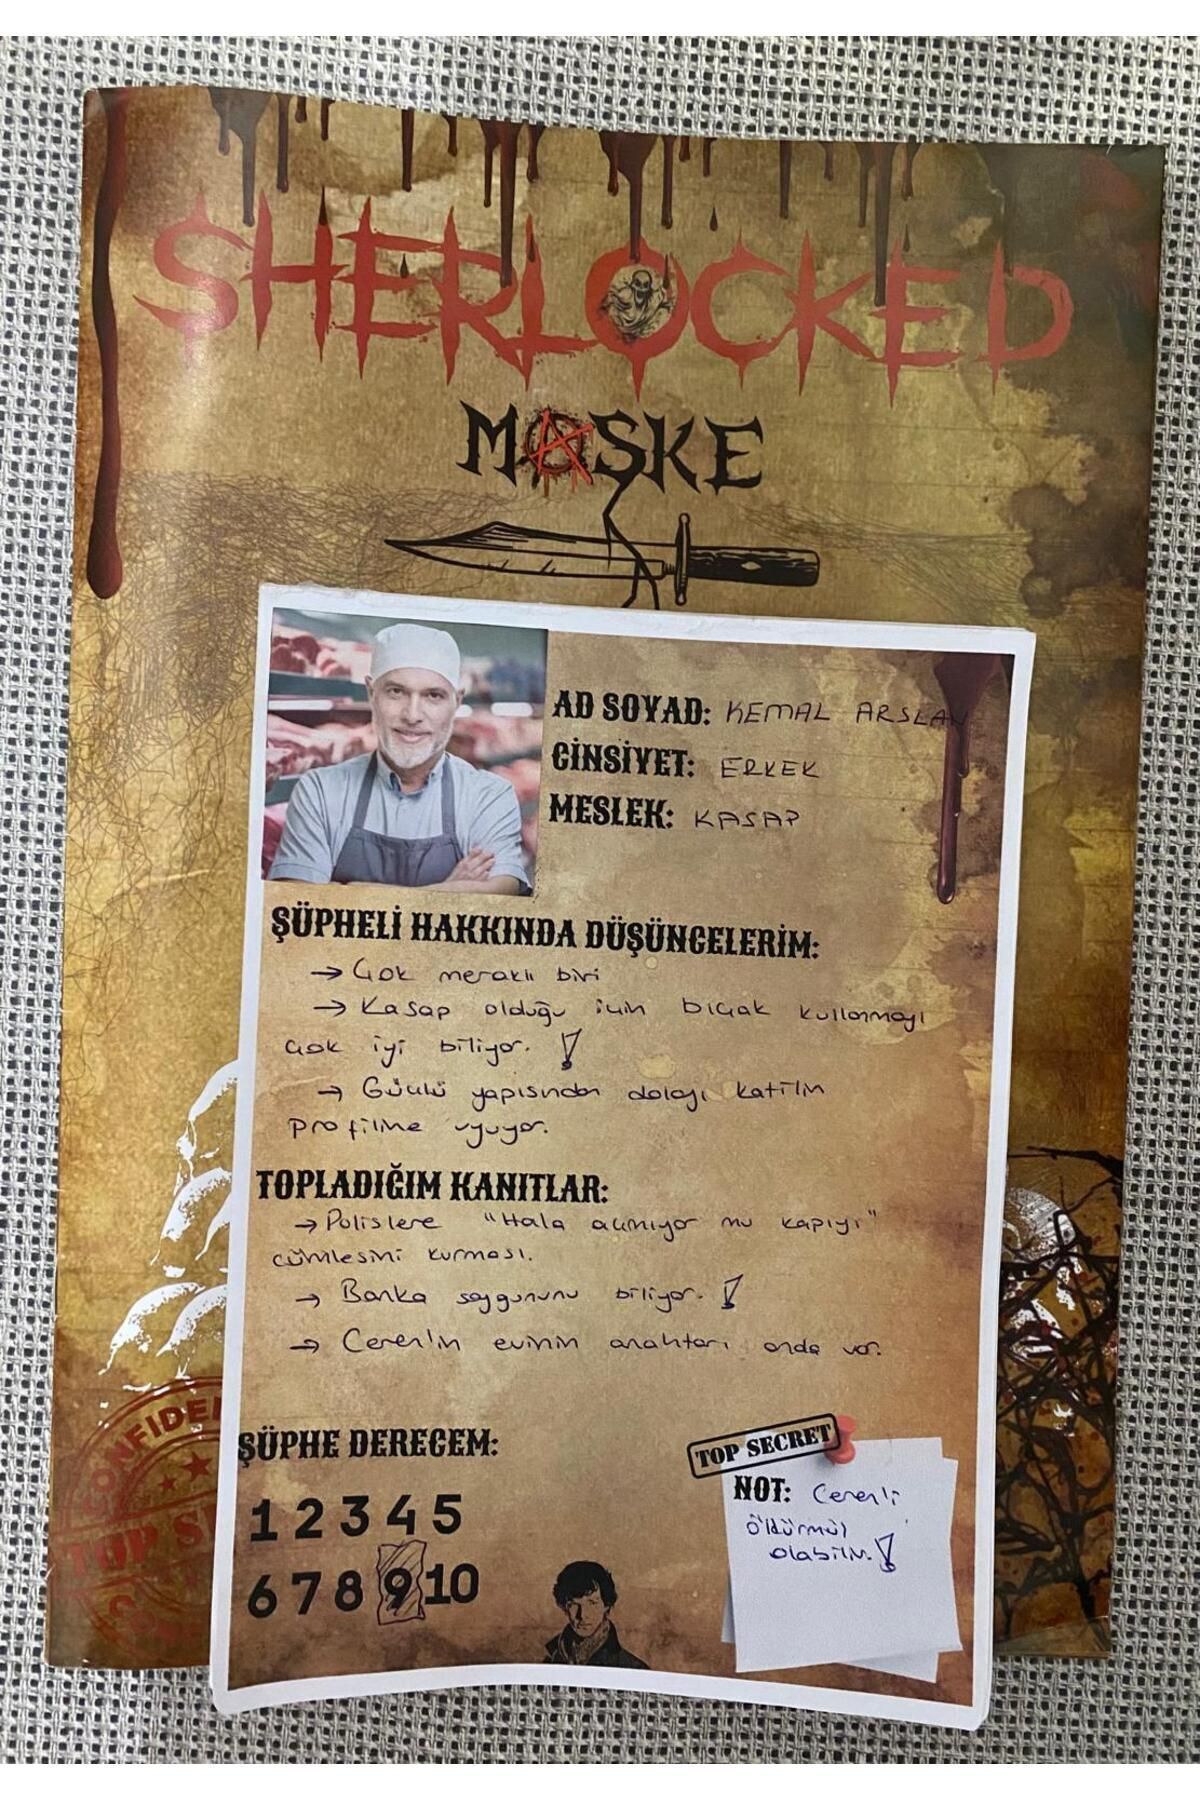 SHERLOCKED
MASKE
AD SOYAD: KEMAL ARSLAN
CİNSİYET: ERKEK
MESLEK: KASAP
ŞÜPHELİ HAKKINDA DÜŞÜNCELERİM:
→ Çok meraklı biri
→ Kasap olduğu için bıçak kullanmayı
çok iyi biliyor. !
→ Güçlü yapısından dolayı katilin
profiline uyuyor.
TOPLADIĞIM KANITLAR:
→ Polislere "Hala açmıyor mu kapıyı"
cümlesini kurması.
→ Banka soygununu biliyor. !
→ Ceren'in evinin anahtarı onda var.
ŞÜPHE DERECEM:
1 2 3 4 5
6 7 8 9 10
TOP SECRET
NOT: Ceren'i
öldürmüş
olabilir. !
CONFIDE
TOP S
CO